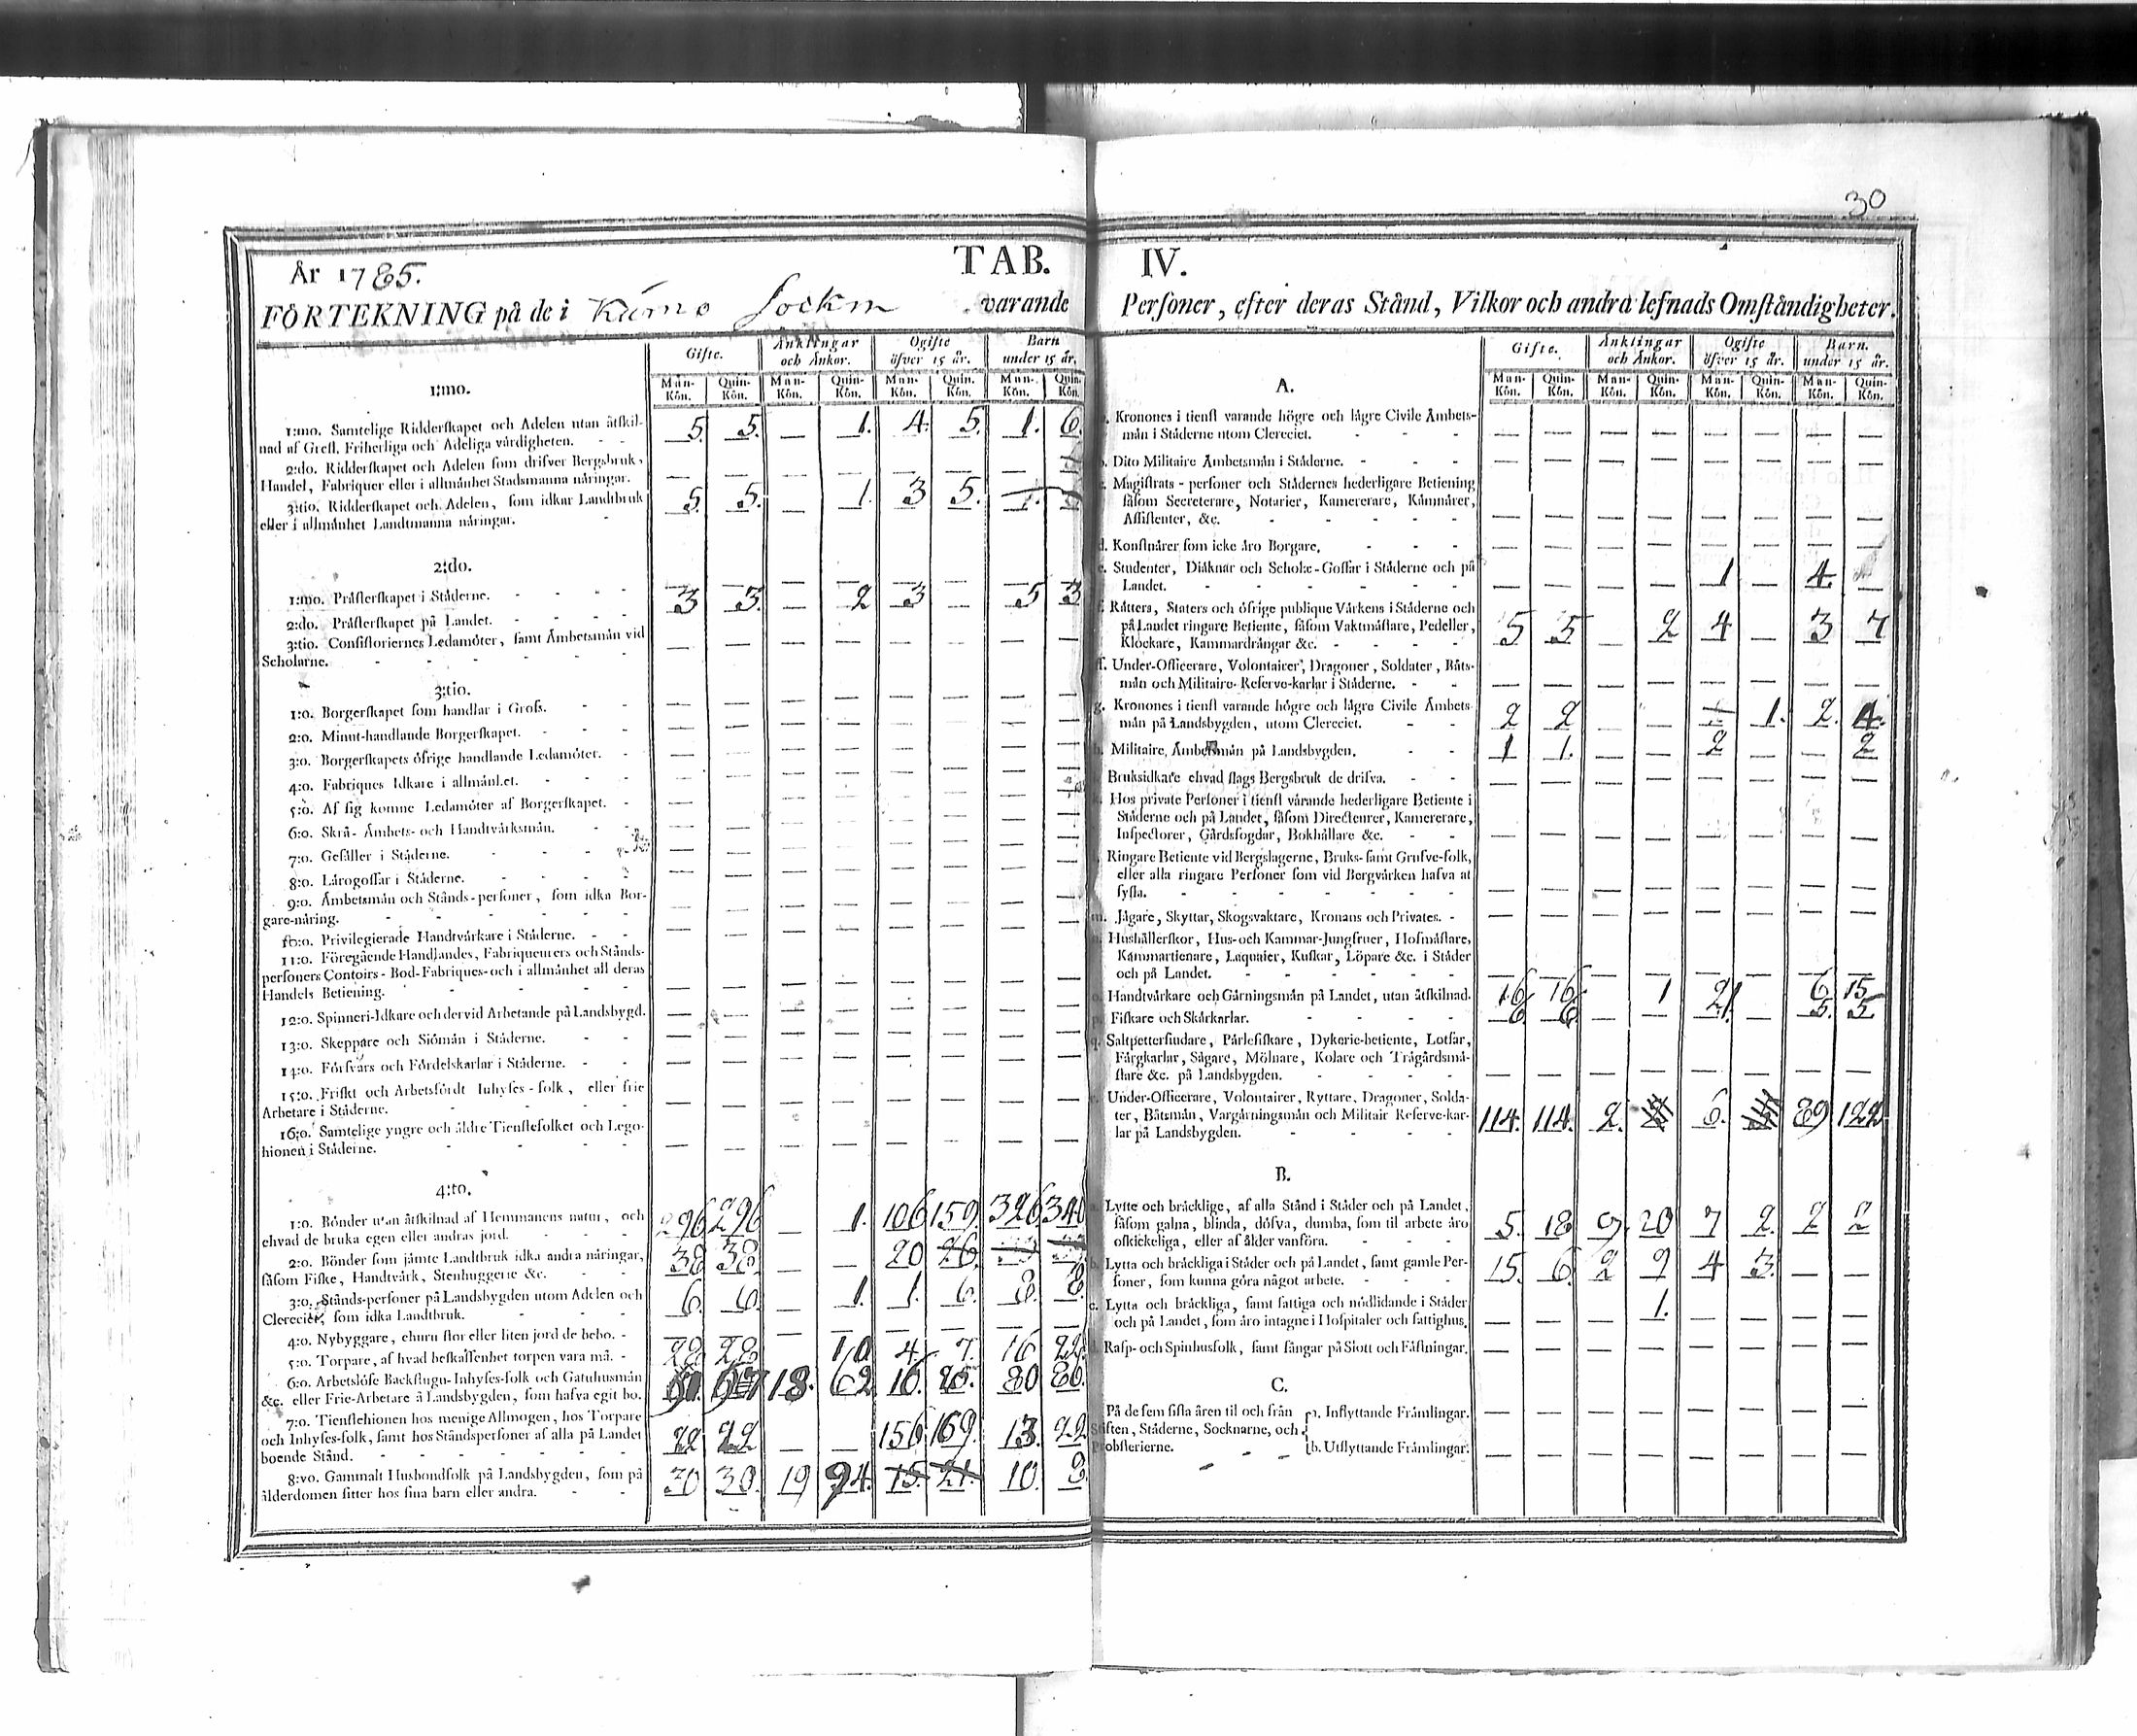 30
År 1785. TAB. IV.
FÖRTEKNING på de i Kumo Sockn varande Personer, efter deras Stånd, Vilkor och andra lefnads Omständigheter.
Gifte. Änklingar och Änkor. Ogifte öfver 15 år. Barn under 15 år.
Man-Kön. Quin-Kön. Man-Kön. Quin-Kön. Man-Kön. Quin-Kön. Man-Kön. Quin-Kön.
1:mo.
1:mo. Samtelige Ridderskapet och Adelen utan åtskil-
nad af Grefl. Friherliga och Adeliga värdigheten. - - 5. 5. — 1. 4. 5. 1. 6.
2:do. Ridderskapet och Adelen som drifver Bergsbruk,
Handel, Fabriquer eller i allmänhet Stadsmanna näringar. — — — — — —
3:tio. Ridderskapet och Adelen, som idkar Landtbruk 5. 5. — 1. 3 5. 1.
eller i allmänhet Landtmanna näringar. -
2:do.
1:mo. Prästerskapet i Städerne. - - - - — — — — — — — —
2:do. Prästerskapet på Landet. - - - - 3 3. — 2 3 — 5 3
3:tio. Consistoriernes Ledamöter, samt Ämbetsmän vid
Scholarne. - - - - - - — — — — — — — —
3:tio.
1:o. Borgerskapet som handlar i Gross. - - — — — — — — — —
2:o. Minut-handlande Borgerskapet. - - — — — — — — — —
3:o. Borgerskapets öfrige handlande Ledamöter. - - — — — — — — — —
4:o. Fabriques Idkare i allmänhet. - - - — — — — — — — —
5:o. Af sig komne Ledamöter af Borgerskapet. - — — — — — — — —
6:o. Skrå- Ämbets- och Handtvärksmän. - - — — — — — — — —
7:o. Gesäller i Städerne. - - - — — — — — — — —
8:o. Lärogossar i Städerne. - - - - — — — — — — — —
9:o. Ämbetsmän och Stånds-personer, som idka Bor-
gare-näring. - - - - - - — — — — — — — —
10:o. Privilegierade Handtvärkare i Städerne. - - — — — — — — — —
11:o. Föregående Handlandes, Fabriqueurers och Stånds-
personers Contoirs - Bod-Fabriques-och i allmänhet all deras
Handels Betiening. - - - - - — — — — — — — —
12:o. Spinneri-Idkare och dervid Arbetande på Landsbygd. — — — — — — — —
13:o. Skeppare och Siömän i Städerne. - - — — — — — — — —
14:o. Försvars och Fördelskarlar i Städerne. - - — — — — — — — —
15:o. Friskt och Arbetsfördt Inhyses - folk, eller frie
Arbetare i Städerne. - - - - - — — — — — — — —
16:o. Samtelige yngre och äldre Tienstefolket och Lego-
hionen i Städerne. - - - - — — — — — — — —
4:to.
1:o. Bönder utan åtskilnad af Hemmanens natur, och
ehvad de bruka egen eller andras jord. - - - 296 296 — 1. 106 159. 326 340
2:o. Bönder som jämte Landtbruk idka andra näringar,
såsom Fiske, Handtvärk, Stenhuggerie &c. - - 38 38. — — 20 26.
3:o. Stånds-personer på Landsbygden utom Adelen och
Clereciet, som idka Landtbruk. - - - 6. 6. — 1. 1. 6. 8. 8
4:o. Nybyggare, ehuru stor eller liten jord de bebo. - — — — — — — — —
5:o. Torpare, af hvad beskaffenhet torpen vara må. - 28 28 — 10 4. 7. 16 22.
6:o. Arbetslöse Backstugu-Inhyses-folk och Gatuhusmän
&c. eller Frie-Arbetare å Landsbygden, som hafva eget bo. 18. 62 16. 25. 80 86.
7:o. Tienstehionen hos menige Allmogen, hos Torpare
och Inhyses-folk, samt hos Ståndspersoner af alla på Landet
boende Stånd. - - - - - - 22 22 — — 156 169. 13. 22
8:vo. Gammalt Husbondfolk på Landsbygden, som på
ålderdomen sitter hos sina barn eller andra. - - 30 30. 19 94. 15. 21. 10. 8.
Gifte. Änklingar och Änkor. Ogifte öfver 15 år. Barn. under 15 år.
Man-Kön. Quin-Kön. Man-Kön. Quin-Kön. Man-Kön. Quin-Kön. Man-Kön. Quin-Kön.
A.
Kronones i tienst varande högre och lägre Civile Ämbets-
män i Städerne utom Clereciet. - - - — — — — — — — —
Dito Militaire Ämbetsmän i Städerne. - - - — — — — — — — —
Magistrats - personer och Städernes hederligare Betiening
såsom Secreterare, Notarier, Kamererare, Kämnärer,
Assistenter, &c. - - - - - — — — — — — — —
d. Konstnärer som icke äro Borgare. - - - — — — — — — — —
e. Studenter, Diäknar och Scholæ-Gossar i Städerne och på
Landet. - - - - - - — — — — 1 — 4. —
f. Rätters, Staters och öfrige publique Värkens i Städerne och
på Landet ringare Betiente, såsom Vaktmästare, Pedeller,
Klockare, Kammardrängar &c. - - - - 5 5. — 2 4 — 3 7
ff. Under-Officerare, Volontairer, Dragoner, Soldater, Båts-
män och Militaire-Reserve-karlar i Städerne. - - — — — — — — — —
g. Kronones i tienst varande högre och lägre Civile Ämbets-
män på Landsbygden, utom Clereciet. - - 2 2 — — 1. 2. 4.
h. Militaire Ämbetsmän på Landsbygden. - - 1 1. — — 2 — — 2
Bruksidkare ehvad slags Bergsbruk de drifva. - - — — — — — — — —
k. Hos private Personer i tienst varande hederligare Betiente i
Städerne och på Landet, såsom Directeurer, Kamererare,
Inspectorer, Gårdsfogdar, Bokhållare &c. - - — — — — — — — —
Ringare Betiente vid Bergslagerne, Bruks- samt Grufve-folk,
eller alla ringare Personer som vid Bergvärken hafva at
sysla. - - - - - - — — — — — — — —
m. Jägare, Skyttar, Skogsvaktare, Kronans och Privates. - — — — — — — — —
Hushållerskor, Hus-och Kammar-Jungfruer, Hofmästare,
Kammartienare, Laquaier, Kuskar, Löpare &c. i Städer
och på Landet. - - - - - — — — — — — — —
o. Handtvärkare och Gärningsmän på Landet, utan åtskilnad. 16 16 — 1 21. — 6 15
p. Fiskare och Skärkarlar. - - - - - 6. 6. — — — 5. 5.
q. Saltpettersiudare, Pärlefiskare, Dykerie-betiente, Lotsar,
Färgkarlar, Sågare, Mölnare, Kolare och Trägårdsmä-
stare &c. på Landsbygden. - - - - — — — — — — — —
Under-Officerare, Volontairer, Ryttare, Dragoner, Solda-
ter, Båtsmän, Vargärningsmän och Militair Reserve-kar-
lar på Landsbygden. - - - - 114. 114. 2. 6. 89 122
B.
Lytte och bräcklige, af alla Stånd i Städer och på Landet,
såsom galna, blinda, döfva, dumba, som til arbete äro
oskickeliga, eller af ålder vanföra. - - - - 5. 18 9. 20 7 2. 2 2
b. Lytta och bräckliga i Städer och på Landet, samt gamle Per-
soner, som kunna göra något arbete. - - - 15. 6. 2 9 4 3. — —
c. Lytta och bräckliga, samt fattiga och nödlidande i Städer
och på Landet, som äro intagne i Hospitaler och fattighus. — — — 1. — — — —
Rasp- och Spinhusfolk, samt fångar på Slott och Fästningar. — — — — — — — —
C.
På de fem sista åren til och från a. Inflyttande Främlingar. — — — — — — — —
Stiften, Städerne, Socknarne, och
Probsterierne. - - b. Utflyttande Främlingar. — — — — — — — —